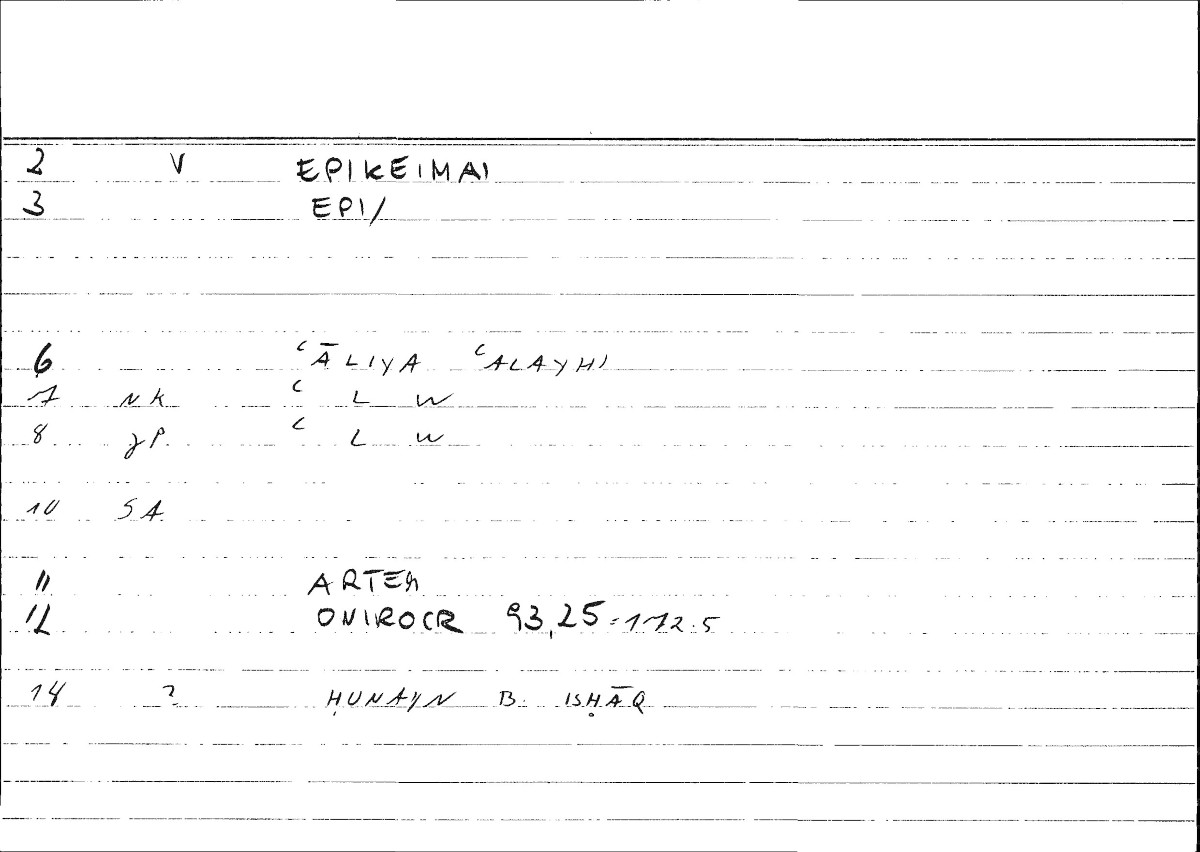 2 V EPIKEIMAI
3 EPI/
6 ʿĀLIYA ʿALAYHI
7 NK ʿ L W
8 JP ʿ L W
10 SA
11 ARTEM
12 ONIROCR 93,25 = 172.5
14 ? ḤUNAYN B. ISḤĀQ